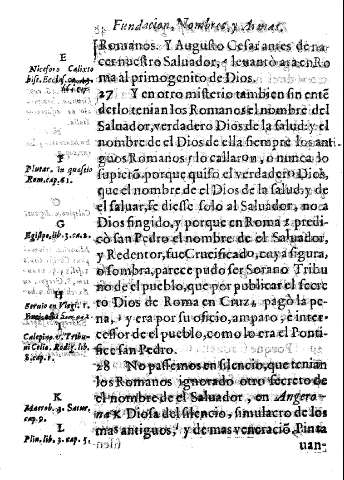 Fundacion, Nombres, y Armas.
Romanos. Y Augusto Cesar antes de na-
cer nuestro Salvador, leuantò ara en Ro
ma al primogenito de Dios.
27 Y en otro misterio tambien sin enté
derlo tenian los Romanos el nombre del
Salvador, verdadero Dios de la salud: y el
nombre de el Dios de ella siempre los anti-
guos Romanos lo callaron, o nunca lo
supierō: porque quiso el verdadero Dios,
que el nombre de el Dios de la salud, y de
el saluar, se diesse solo al Salvador, no a
Dios fingido, y porque en Roma predi-
cò san Pedro el nombre de el Salvador,
y Redentor, fue Crucificado, cuya figura,
o sombra, parece pudo ser Sorano Tribu
no de el pueblo, que por publicar el secre
to Dios de Roma en Cruz, pagò la pe-
na, y era por su oficio, amparo, e inter-
cessor de el pueblo, como lo era el Ponti-
fice san Pedro.
28 No passemos en silencio, que tenian
los Romanos ignorado otro secreto de
el nombre de el Salvador, en Angero
na K Diosa del silencio, simulacro de los
mas antiguos, y de mas veneraciō. Pinta
uan-
E
Niceforo Calixto
F
Plutar. in questio
Rom. cap. 61.
G
Egisipo, lib. 3. ca. 2.
H
Seruio en Virgi. 1.
I
Calepino, v. Tribu
ni Celio. Rodig. lib.
cap. 1.
K
Macrob. 3. Satur.
cap. 9.
L
Plin. lib. 3. cap. 5.